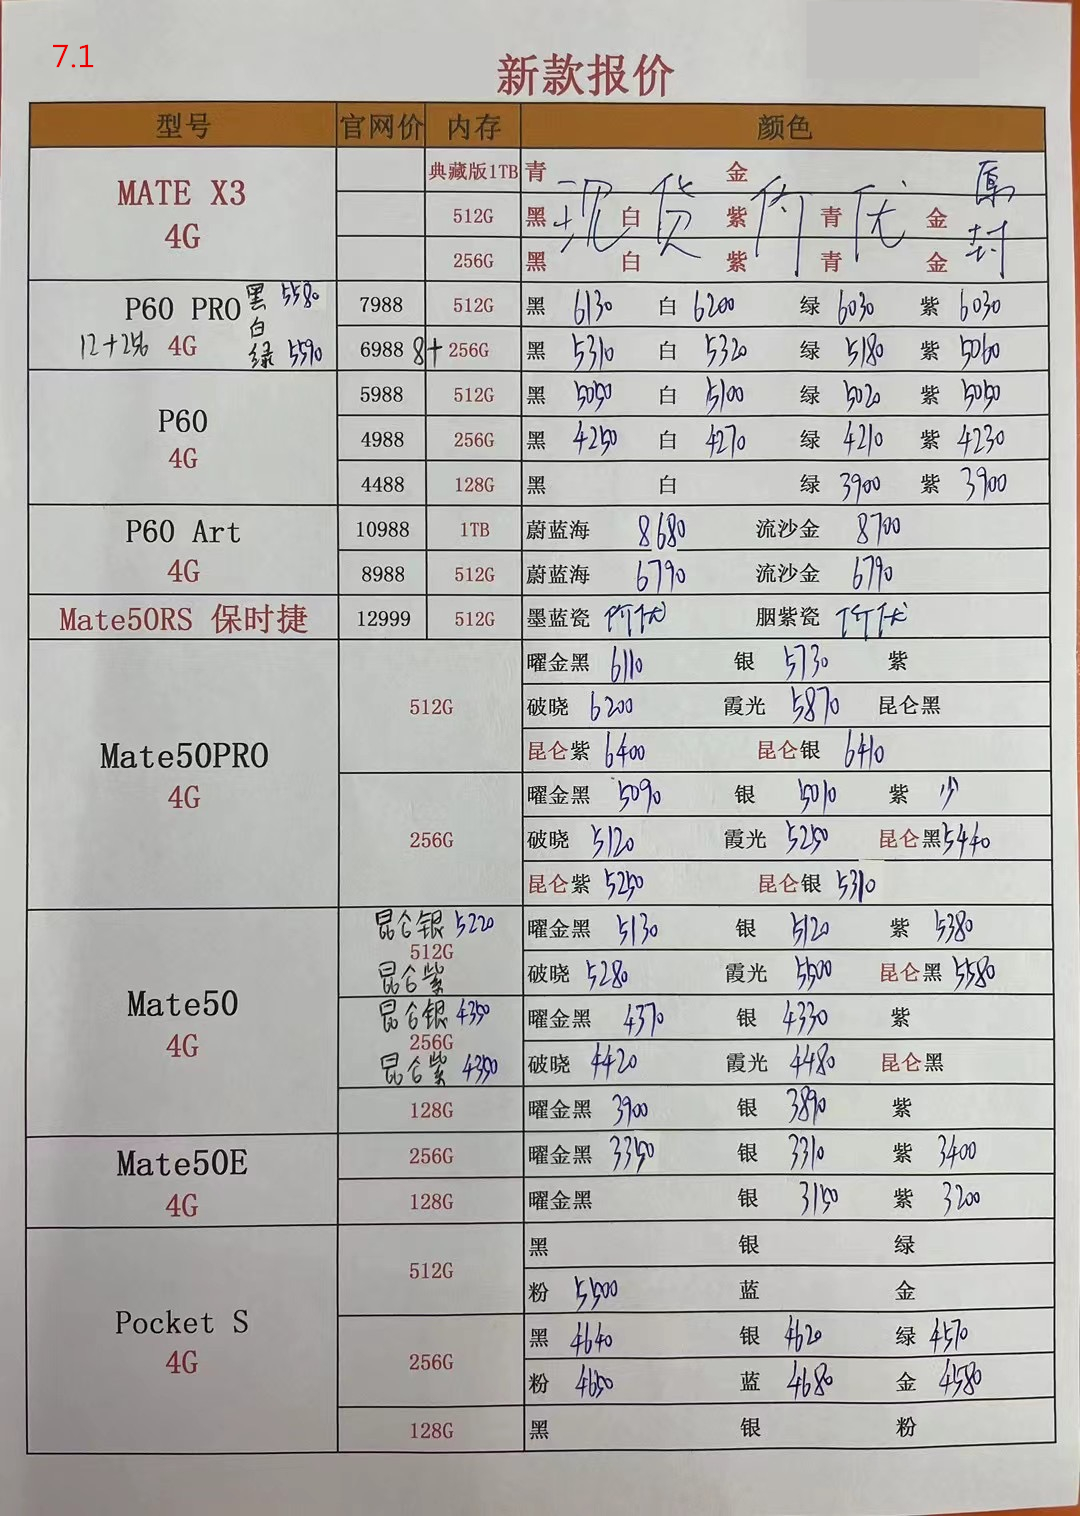 7.1
新款报价
型号 官网价 内存 颜色
典藏版1TB 青 金
MATE X3 512G 黑 白 紫 青 金
4G 256G 黑 白 紫 青 金
现货价优 原封
P60 PRO 黑 5580 7988 512G 黑 6130 白 6200 绿 6030 紫 6030
白
12+256 4G 绿 5590 6988 8+256G 黑 5310 白 5320 绿 5180 紫 5060
P60 5988 512G 黑 5050 白 5100 绿 5020 紫 5050
4G 4988 256G 黑 4250 白 4270 绿 4210 紫 4230
4488 128G 黑 白 绿 3900 紫 3900
P60 Art 10988 1TB 蔚蓝海 8680 流沙金 8700
4G 8988 512G 蔚蓝海 6790 流沙金 6790
Mate50RS 保时捷 12999 512G 墨蓝瓷 价优 胭紫瓷 价优
曜金黑 6110 银 5730 紫
512G 破晓 6200 霞光 5870 昆仑黑
昆仑紫 6400 昆仑银 6410
Mate50PRO
4G 曜金黑 5090 银 5010 紫 少
256G 破晓 5120 霞光 5250 昆仑黑 5440
昆仑紫 5250 昆仑银 5310
昆仑银 5220 曜金黑 5130 银 5120 紫 5380
512G
昆仑紫 破晓 5280 霞光 5500 昆仑黑 5580
Mate50 昆仑银 4350 曜金黑 4370 银 4330 紫
4G 256G
昆仑紫 4350 破晓 4420 霞光 4480 昆仑黑
128G 曜金黑 3900 银 3890 紫
Mate50E 256G 曜金黑 3350 银 3310 紫 3400
4G 128G 曜金黑 银 3150 紫 3200
黑 银 绿
512G
粉 5500 蓝 金
Pocket S 黑 4640 银 4620 绿 4570
4G 256G
粉 4650 蓝 4680 金 4580
128G 黑 银 粉